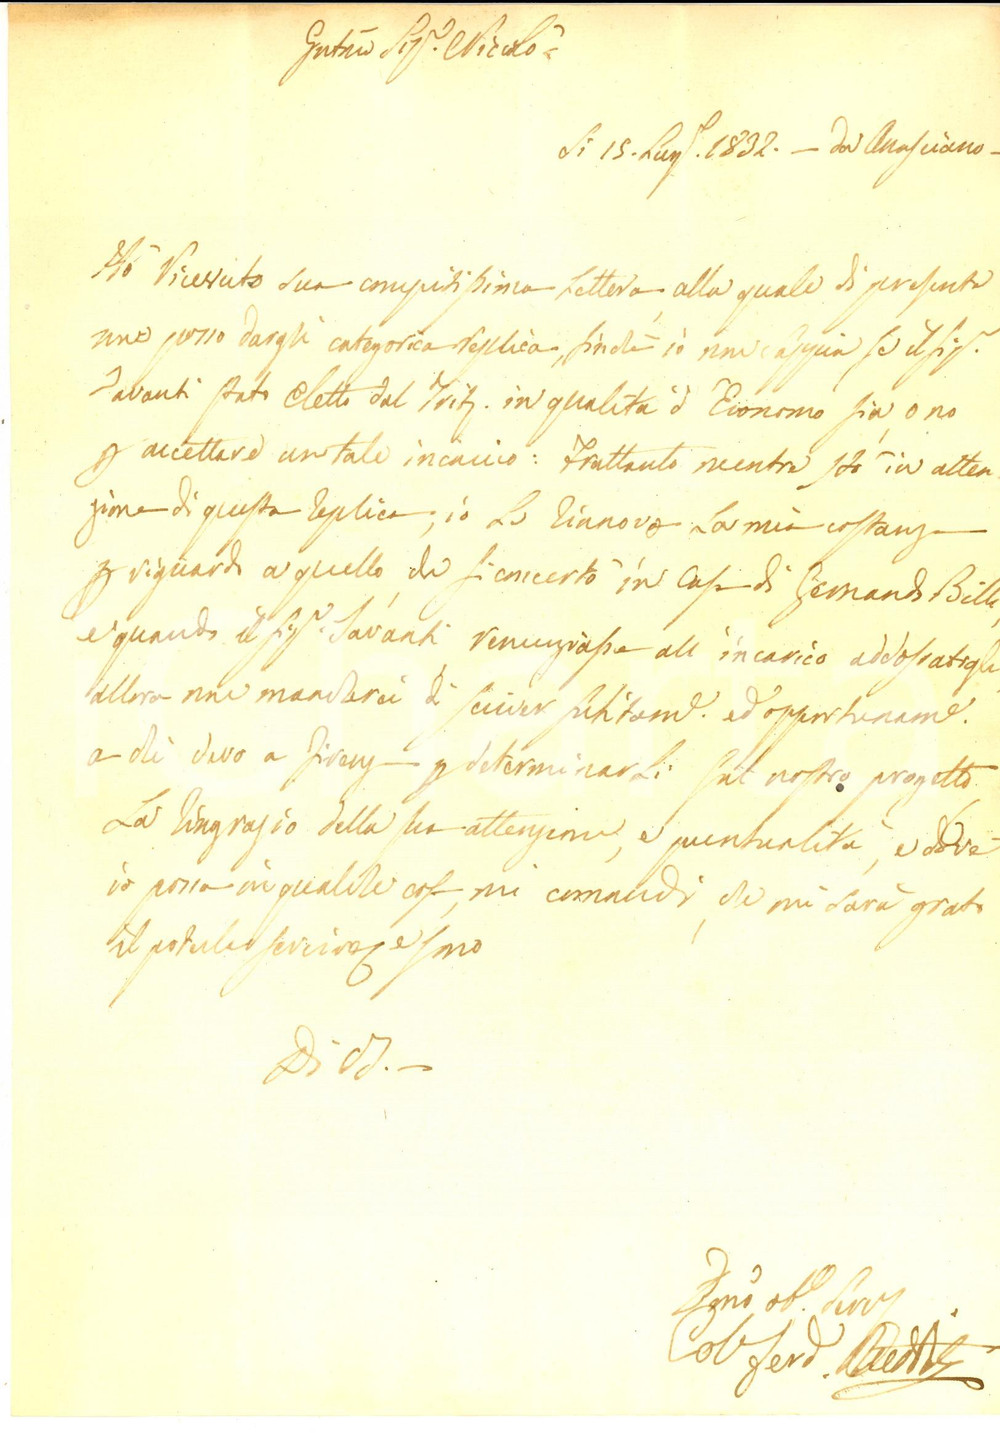 Sig.r Nicolò
Li 15. Lug. 1832. — da Asciano —
Hò Ricevuto sua compitissima Lettera, alla quale di presente
non posso dargli categorica replica, finchè io non sappia se il Sig.r
Savanti stato eletto dal Trib. in qualità d'Economo sia, o no
p accettare un tale incarico: Frattanto mentre stò in atten
zione di questa Replica, io Le Rianovo La mia costanza
p riguardo a quello, che si concertò in Casa di Gernando Billi,
e quando il Sig.r Savanti renunziasse all'incarico addossatogli,
allora non mancherei di scriver subitam.e ed opportunam.e
a chi devo a Firenze p determinarLi sul nostro progetto
La Ringrazio della sua attenzione, e puntualità, e dove
io possa in qualche cosa, mi comandi, che mi sarà grato
il poterla servire, e sono
Di V. —
obb. Serv
Ferd.